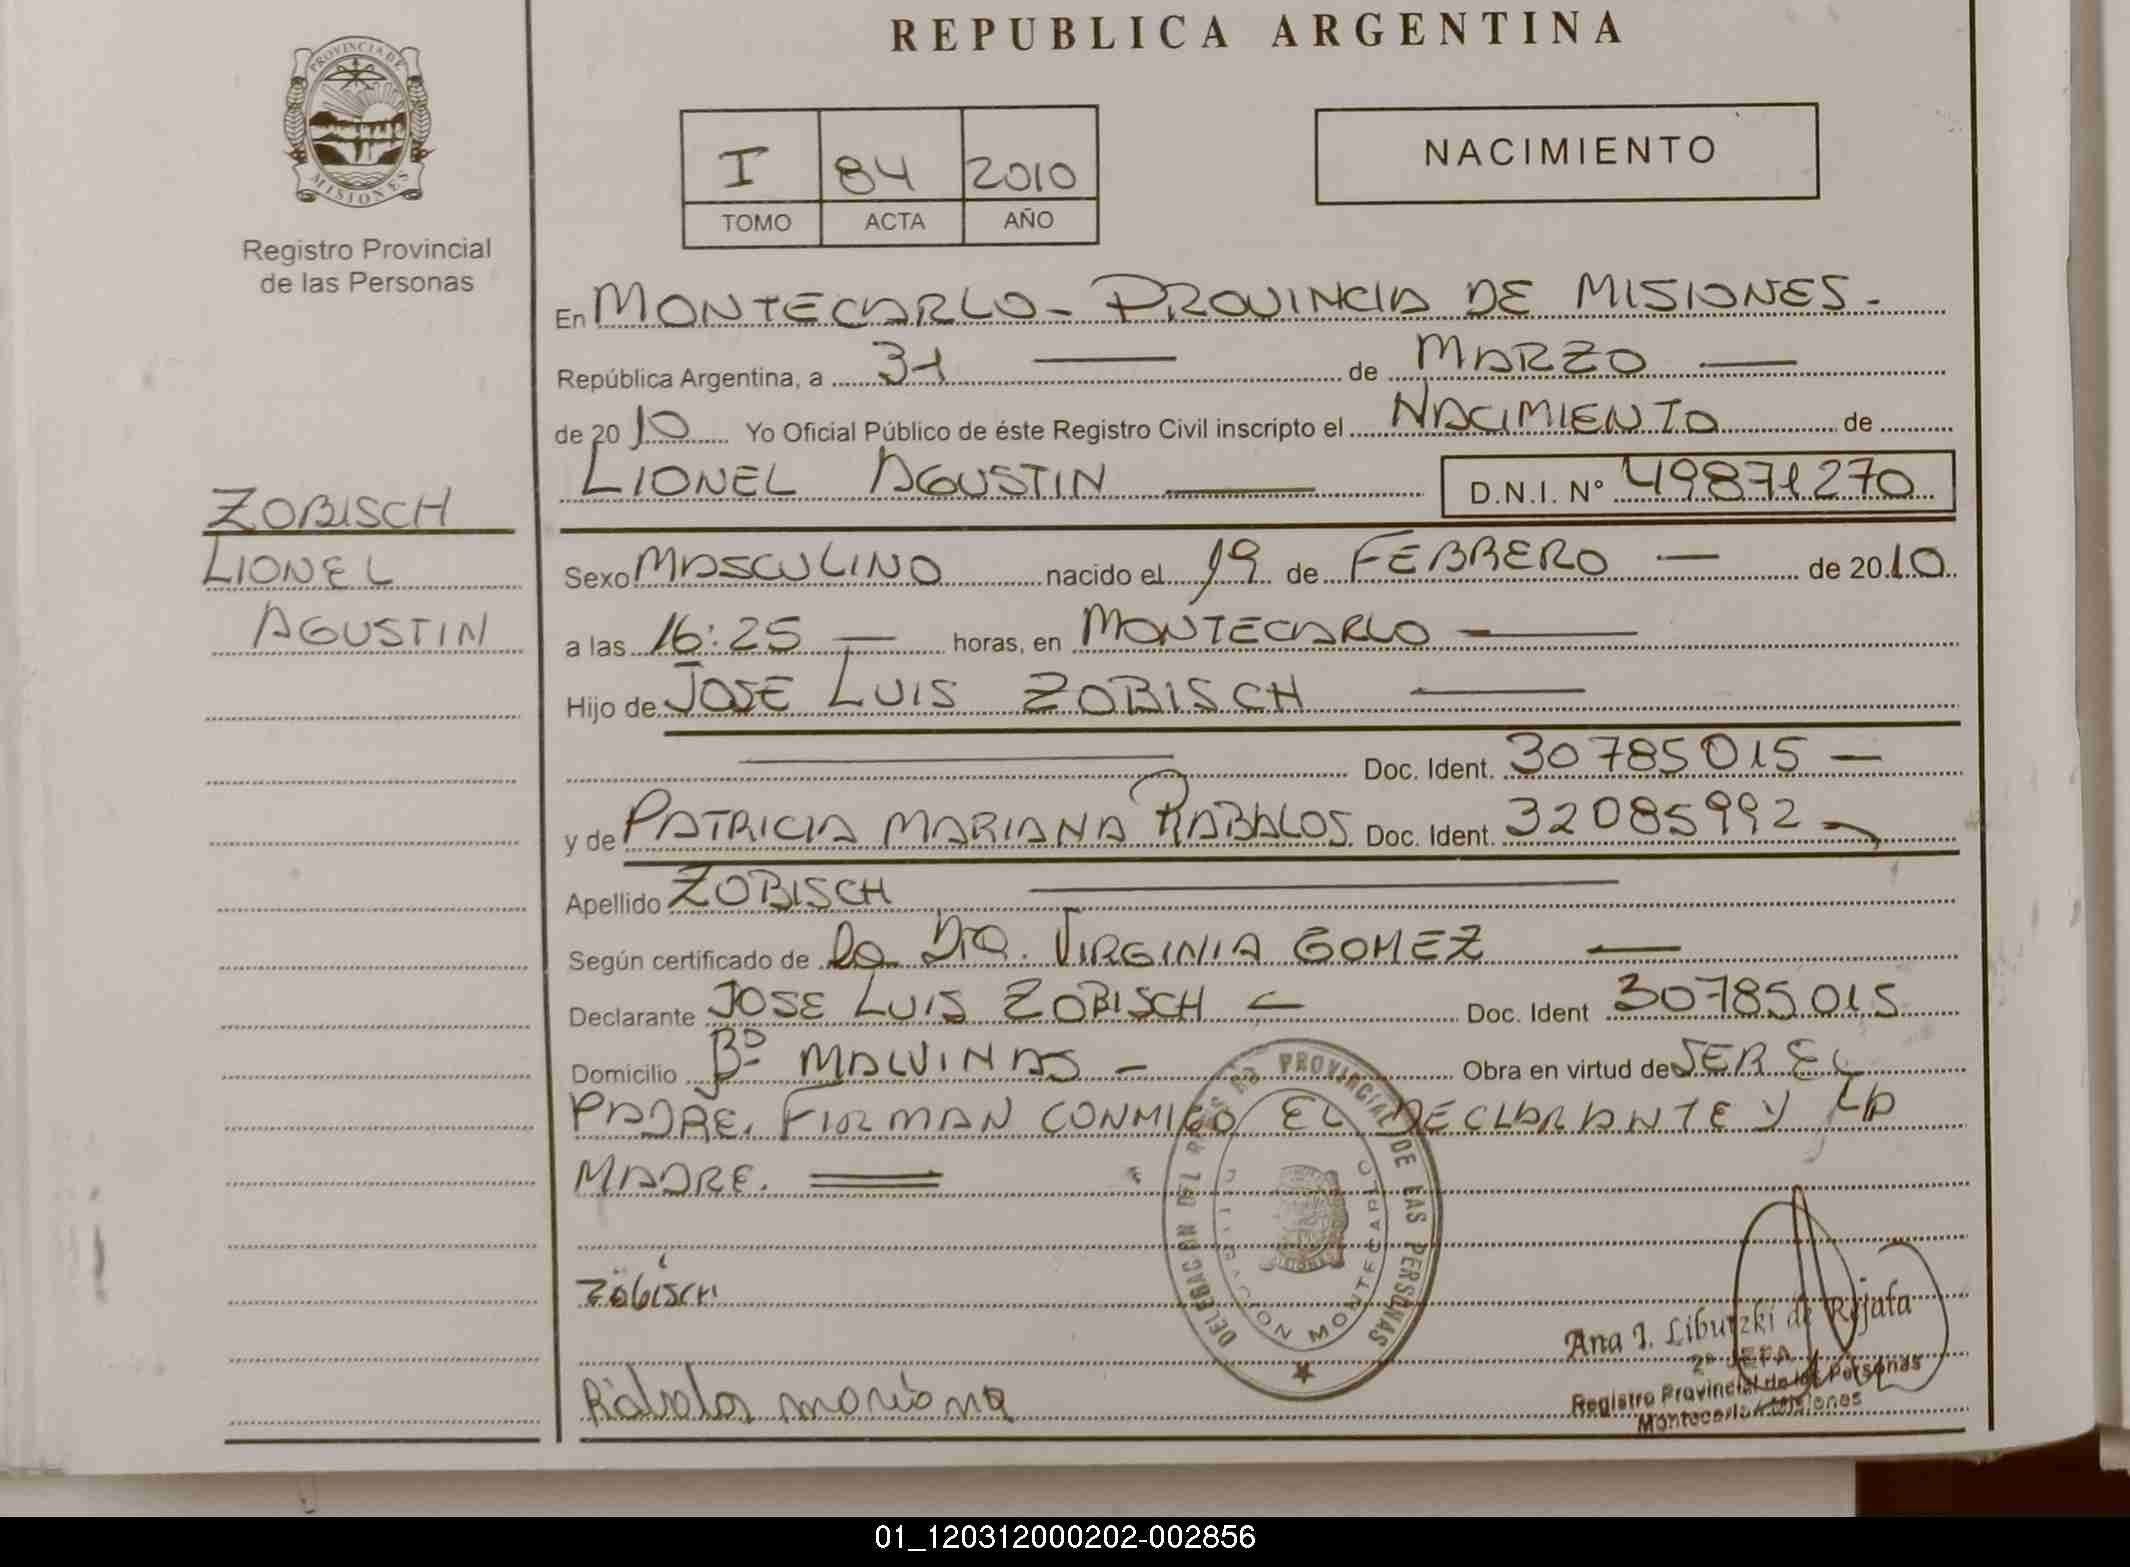 REPUBLICA ARGENTINA
PROVINCIA DE
MISIONES
Registro Provincial
de las Personas
I 84 2010
TOMO ACTA AÑO
NACIMIENTO
En MONTECARLO - PROVINCIA DE MISIONES -
República Argentina, a 31 — de MARZO —
de 2010 Yo Oficial Público de éste Registro Civil inscripto el NACIMIENTO de
LIONEL AGUSTIN — D.N.I. Nº 49871270
ZOBISCH
LIONEL
AGUSTIN
Sexo MASCULINO nacido el 19 de FEBRERO — de 2010
a las 16:25 — horas, en MONTECARLO —
Hijo de JOSE LUIS ZOBISCH —
— Doc. Ident. 30785015 —
y de PATRICIA MARIANA RABALOS. Doc. Ident. 32085992 —
Apellido ZOBISCH —
Según certificado de la Dra. VIRGINIA GOMEZ —
Declarante JOSE LUIS ZOBISCH — Doc. Ident 30785015
Domicilio Bº MALVINAS - Obra en virtud de SER EL
PADRE. FIRMAN CONMIGO EL DECLARANTE Y LA
MADRE.
PROVINCIAL DE LAS PERSONAS
MONTECARLO
Zobisch
Rabalos mariana
Ana I. de
2º JEFA
Registro Provincial de las Personas
Montecarlo - Misiones
01_120312000202-002856